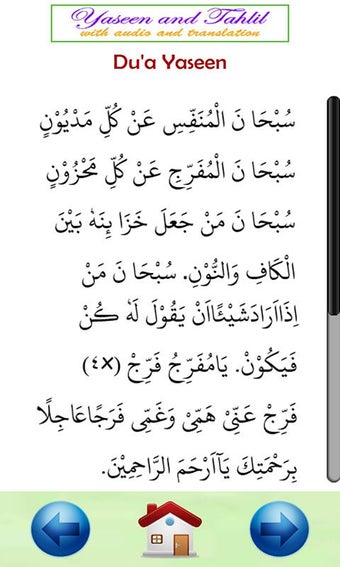 Yaseen and Tahlil
with audio and translation
Du'a Yaseen
سُبْحَا نَ الْمُنَفِّسِ عَنْ كُلِّ مَدْيُوْنٍ
سُبْحَا نَ الْمُفَرِّجِ عَنْ كُلِّ مَحْزُوْنٍ
سُبْحَا نَ مَنْ جَعَلَ خَزَا ئِنَهٗ بَيْنَ
الْكَافِ وَالنُّوْنِ. سُبْحَا نَ مَنْ
اِذَااَرَادَشَيْئًااَنْ يَقُوْلَ لَهٗ كُنْ
فَيَكُوْنْ. يَامُفَرِّجُ فَرِّجْ (٤x)
فَرِّجْ عَنِّيْ هَمِّيْ وَغَمِّيْ فَرَجًاعَاجِلًا
بِرَحْمَتِكَ يَآاَرْحَمَ الرَّاحِمِيْنَ.